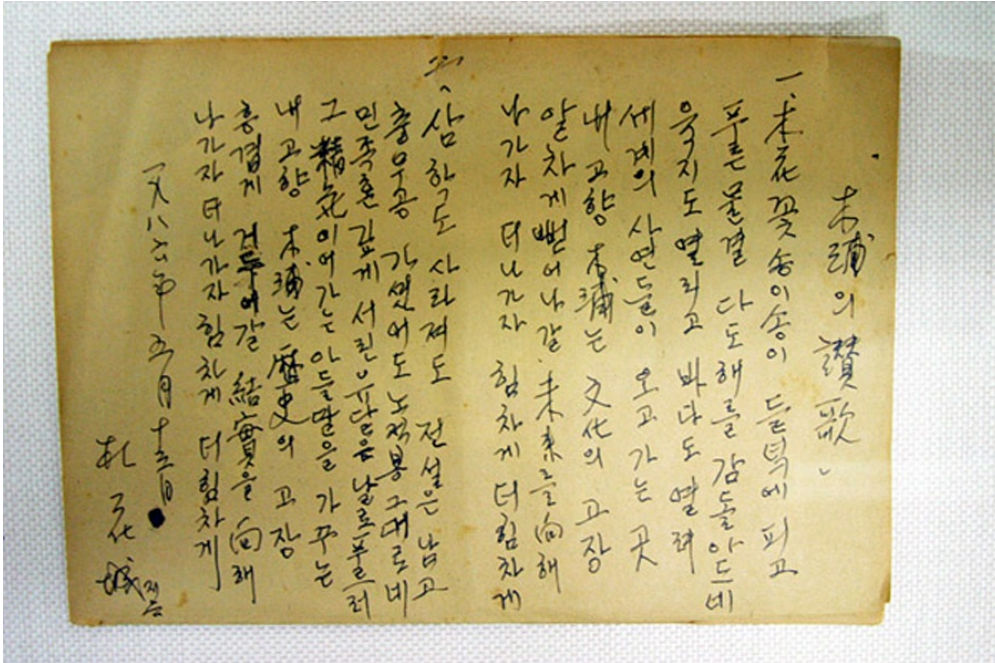 木浦의 讚歌
一. 木花꽃 송이송이 들녘에 피고
푸른물결 다도해를 감돌아드네
육지도 열리고 바다도 열려
세계의 사연들이 오고가는 곳
내고향 木浦는 文化의 고장
알차게 뻗어나갈 未来를 向해
나가자 더나가자 힘차게 더힘차게
二. 삼학도 사라져도 전설은 남고
충무공 가셨어도 노적봉 그대로네
민족혼 깊게 서린 유달은 날로푸르러
그 精気이어가는 아들딸을 가꾸는
내고향 木浦는 歴史의 고장
흥겹게 거두어갈 結實을 向해
나가자 더나가자 힘차게 더힘차게
一九八六年 五月
朴花城 지음